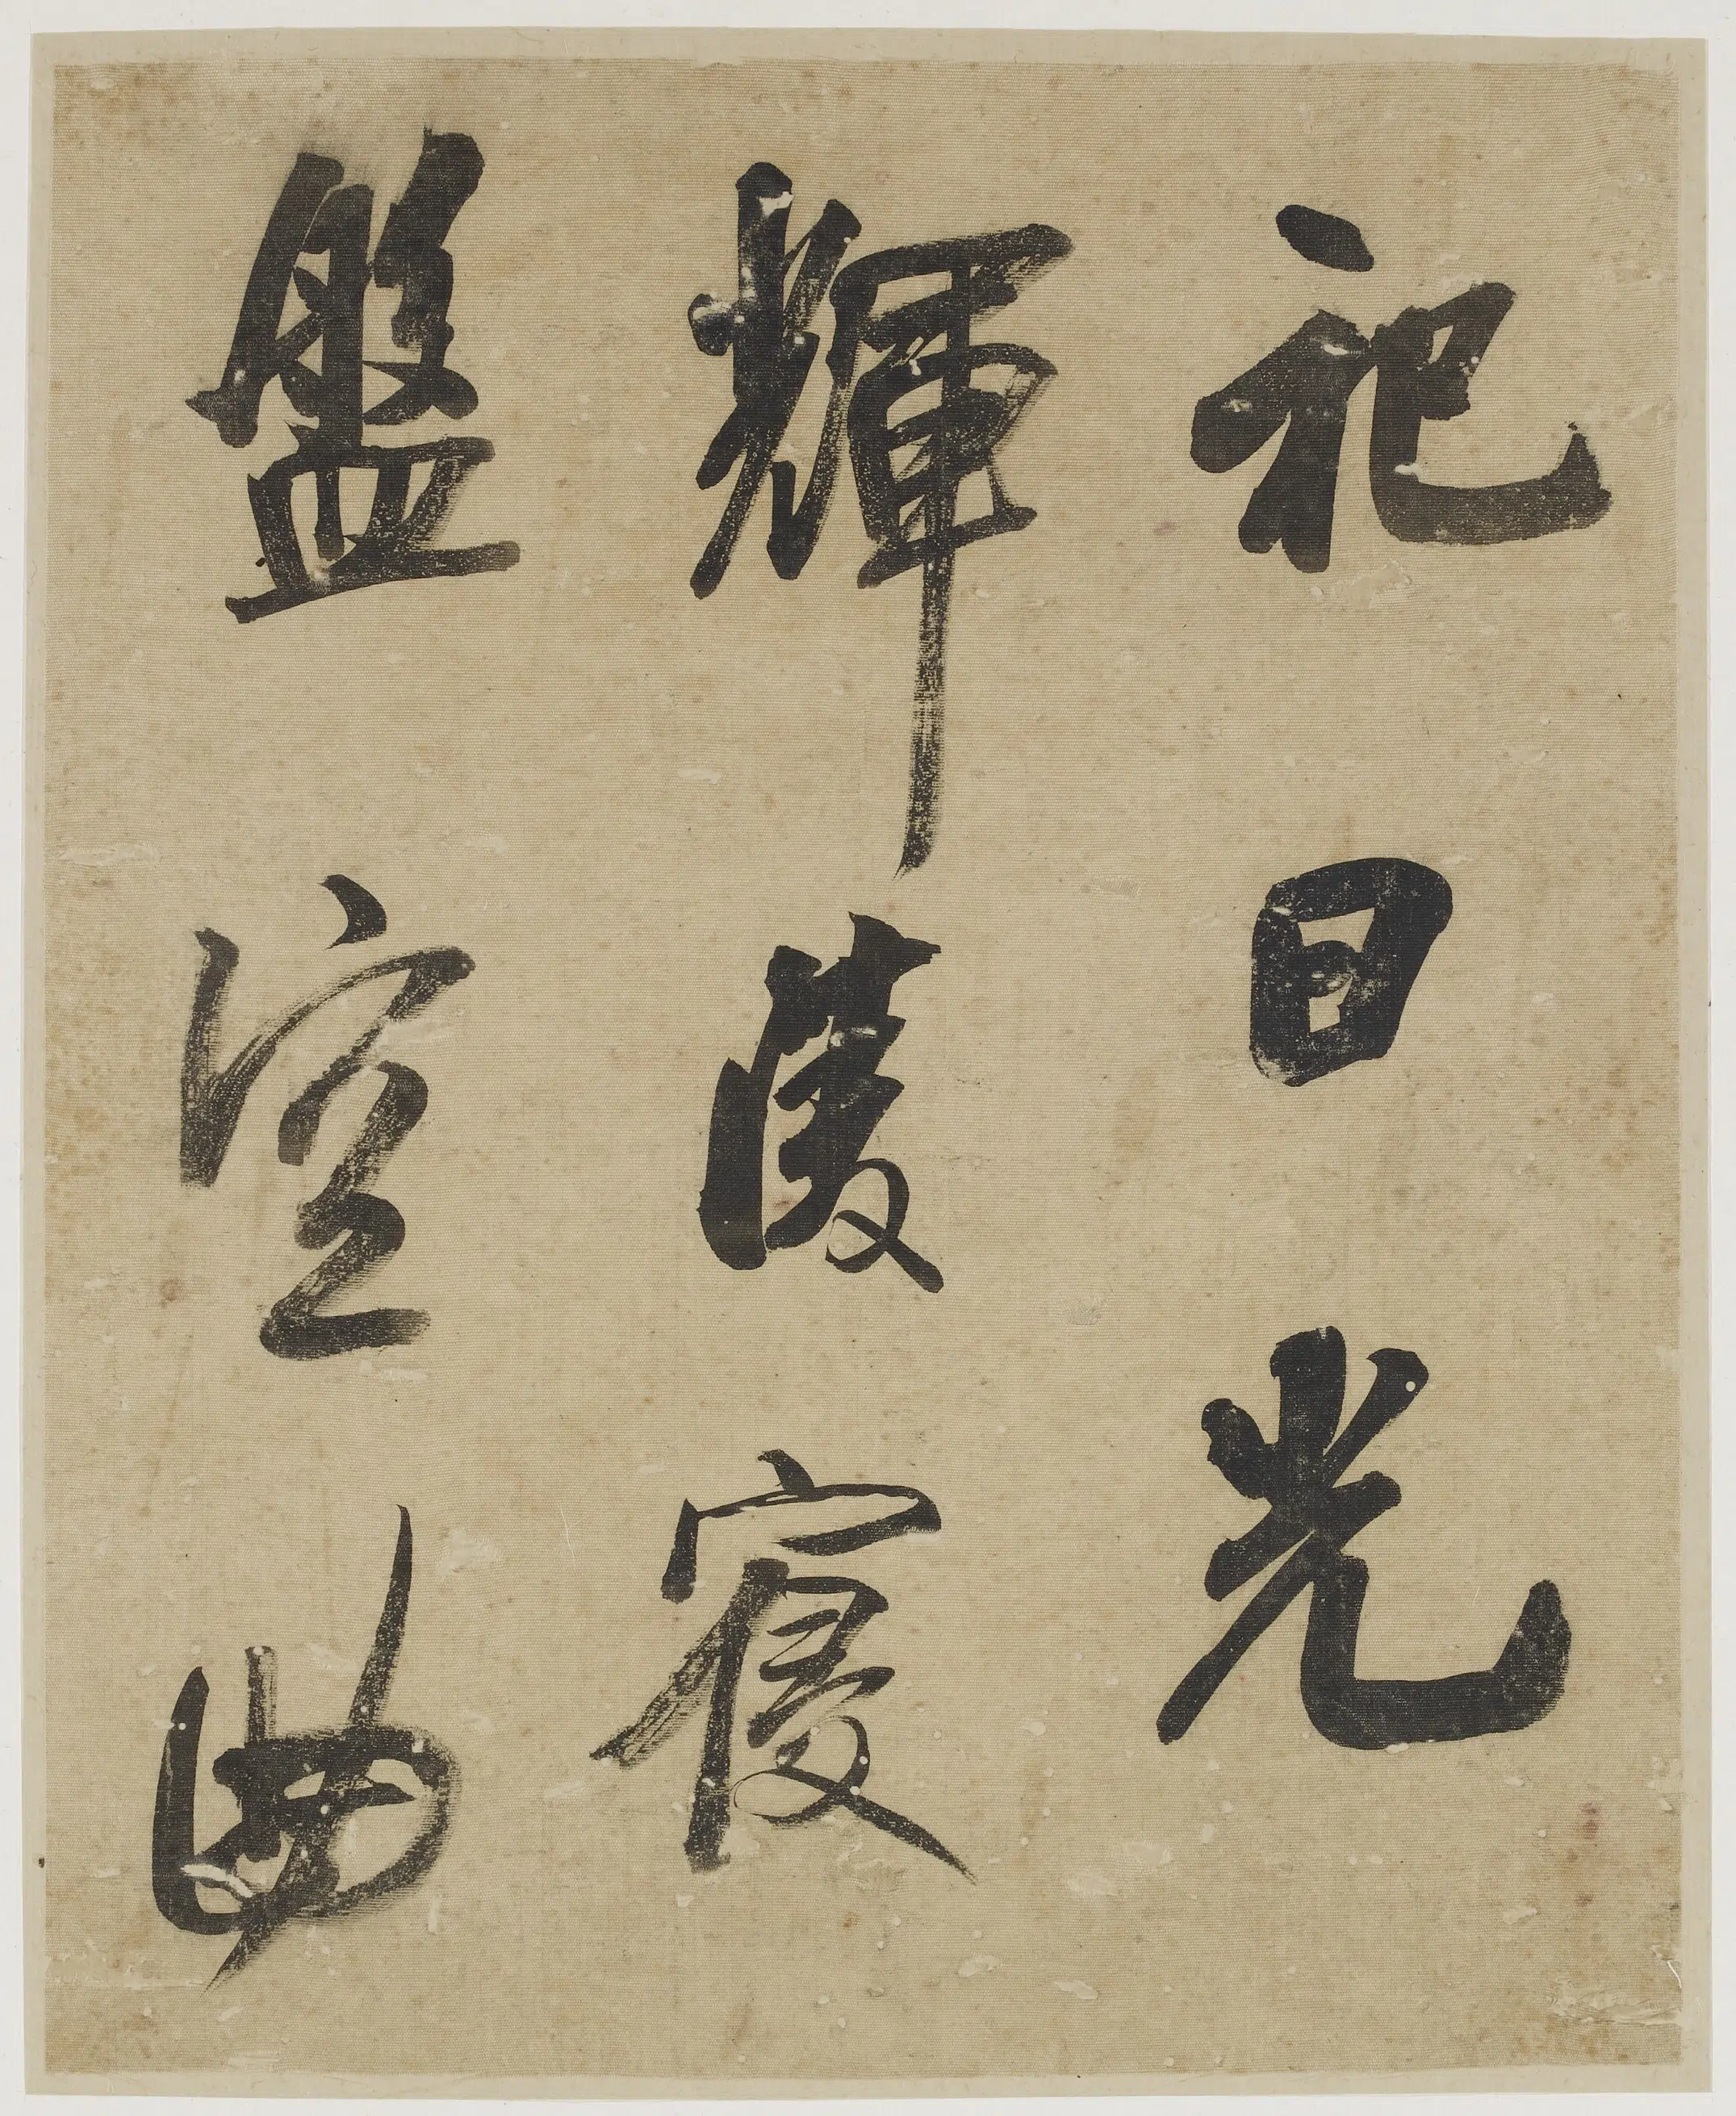 祀日光
輝陵寢
盤空曲